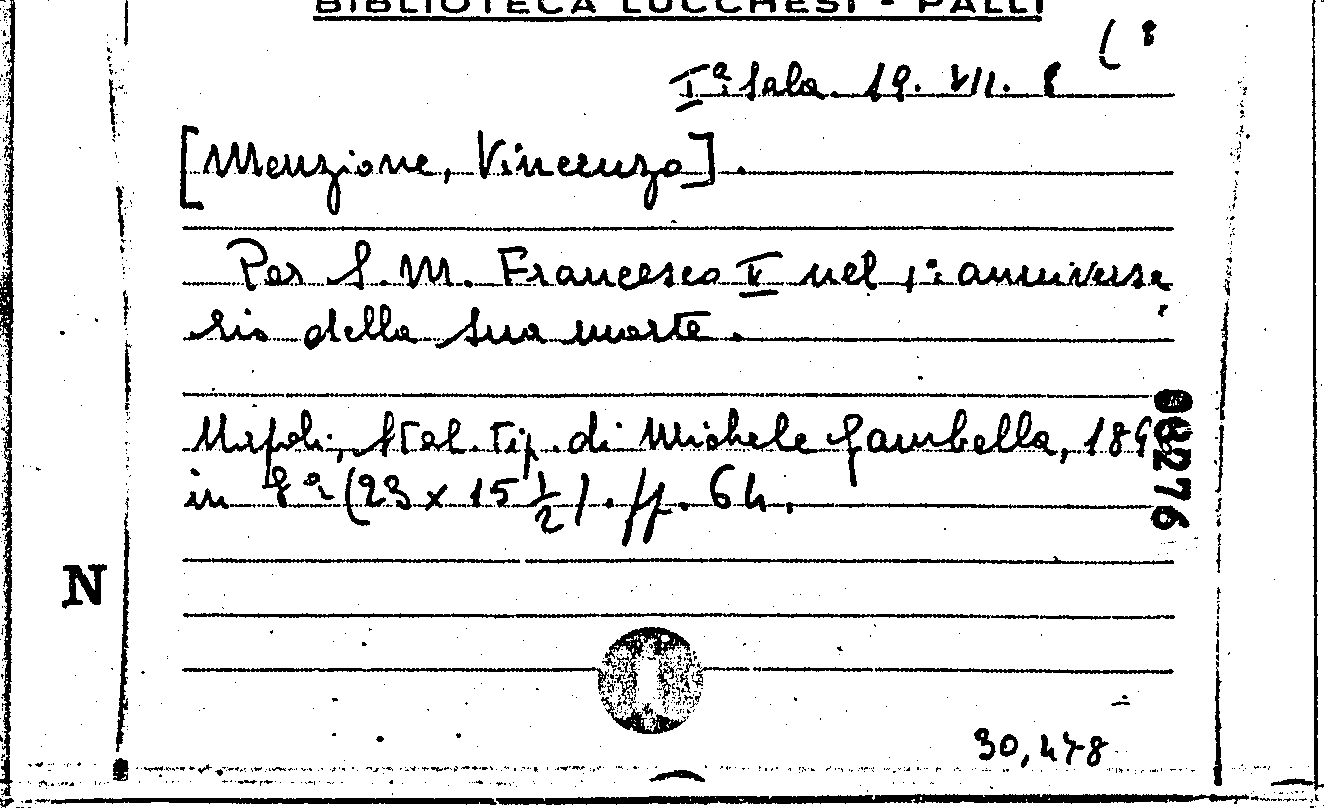 BIBLIOTECA LUCCHESI - PALLI
Iª Sala. 19. VII. 8 (8
[Menzione, Vincenzo].
Per S. M. Francesco II nel 1° anniversa
rio della sua morte.
Napoli, Stab. Tip. di Michele Gambella, 189
in 8° (23 x 15 ½). ff. 64.
08276
N
30,478